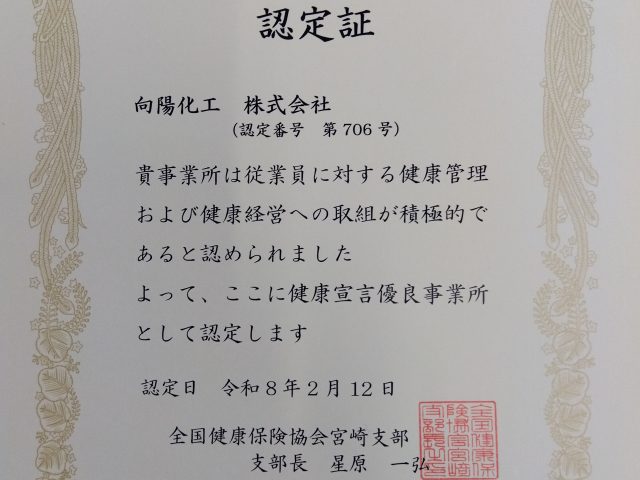 認定証
向陽化工　株式会社
（認定番号　第706号）
貴事業所は従業員に対する健康管理
および健康経営への取組が積極的で
あると認められました
よって、ここに健康宣言優良事業所
として認定します
認定日　令和8年2月12日
全国健康保険協会宮崎支部
支部長　星原　一弘
全国健康保
険協会宮崎